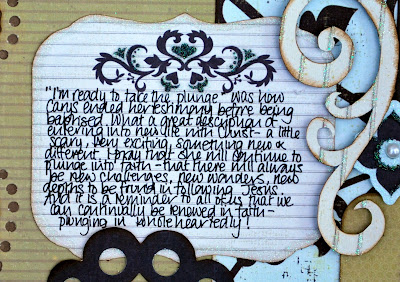 "I'm ready to take the plunge" was how
Carys ended her testimony before being
baptised. What a great description of
entering into new life with Christ - a little
scary, very exciting, something new &
different. I pray that she will continue to
plunge into faith - that there will always
be new challenges, new wonders, new
depths to be found in following Jesus.
And it is a reminder to all of us that we
can continually be renewed in faith -
plunging in whole heartedly!